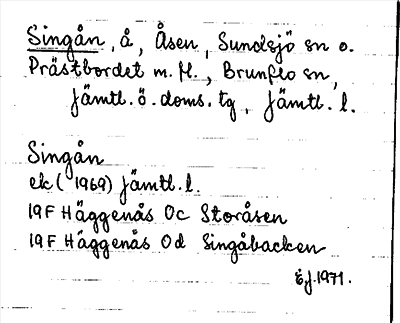 Singån, å, Åsen, Sundsjö sn o.
Prästbordet m. fl., Brunflo sn,
Jämtl. ö. doms. tg, Jämtl. l.
Singån
ek (1969) Jämtl. l.
19F Häggenås Oc Storåsen
19F Häggenås Od Singåbacken
E.J. 1971.